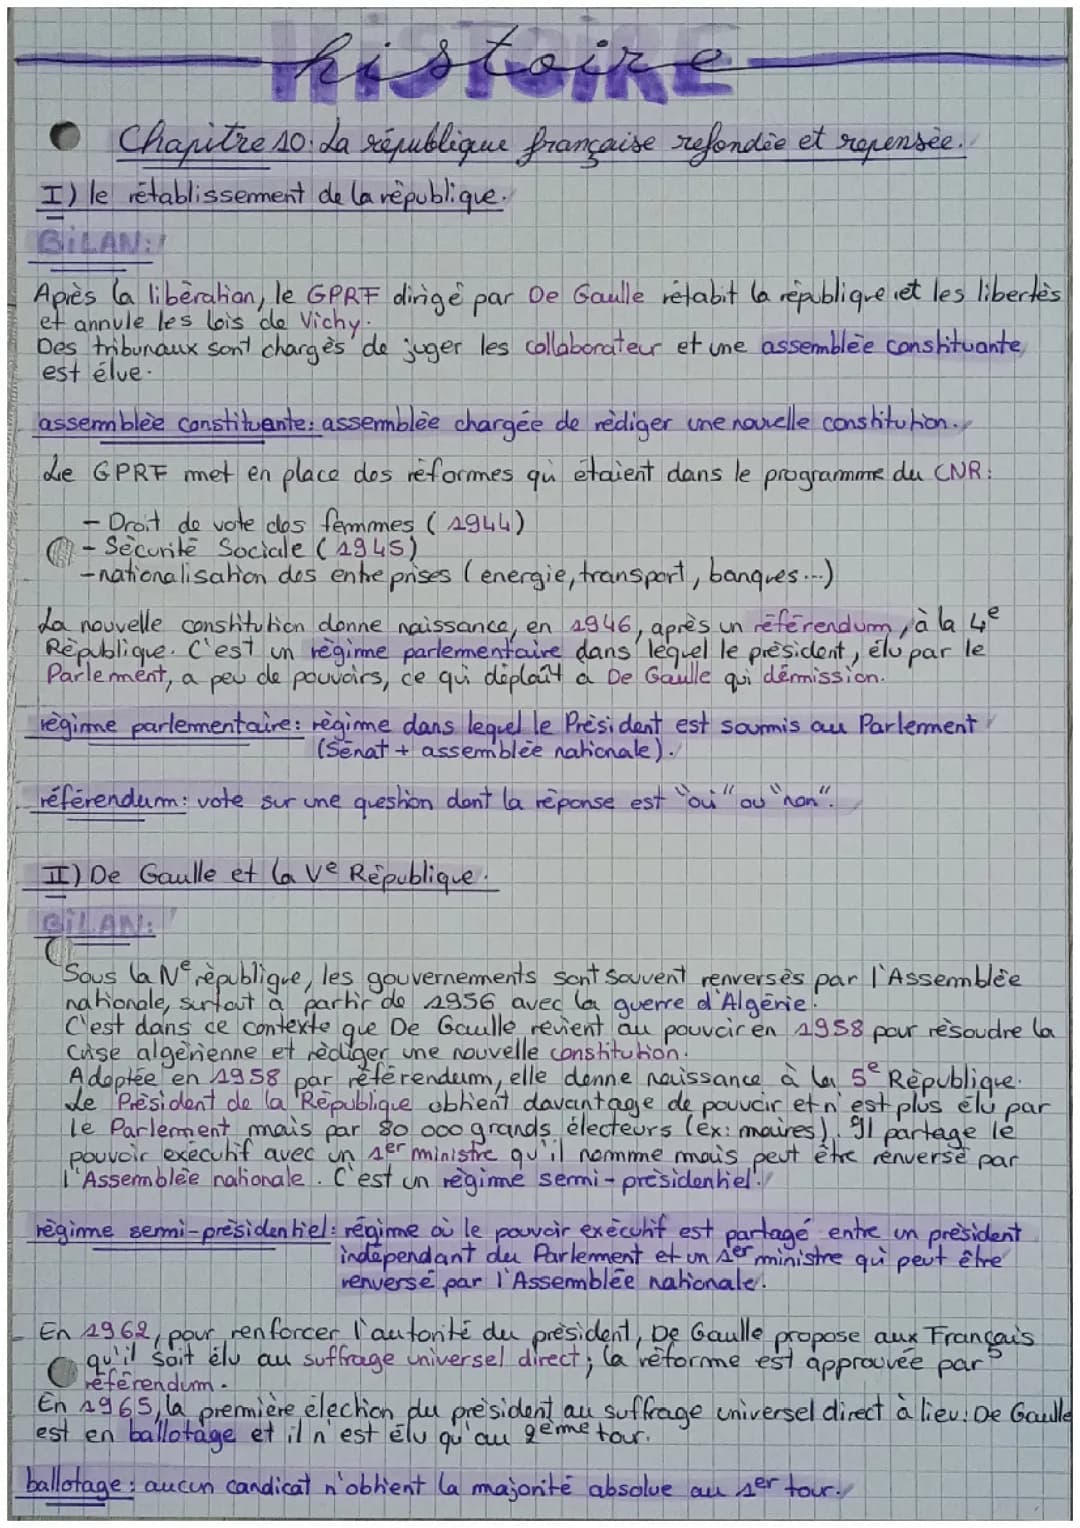 histoire
Chapitre 10: La république française refondée et repensée.
I) le rétablissement de la république.
BILAN:
Après la libération, le GPRF dirigé par De Gaulle rétabit la république et les libertés
et annule les lois de Vichy.
Des tribunaux sont chargés de juger les collaborateur et une assemblée constituante
est élue.
assemblée constituante: assemblée chargée de rédiger une nouvelle constitution.
Le GPRF met en place des réformes qui étaient dans le programme du CNR:
- Droit de vote des femmes (1944)
- Sécurité Sociale (1945)
- nationalisation des entreprises (energie, transport, banques...)
La nouvelle constitution donne naissance, en 1946, après un référendum, à la 4e
République. C'est un régime parlementaire dans lequel le président, élu par le
Parlement, a peu de pouvoirs, ce qui déplaît à De Gaulle qui démission.
régime parlementaire: régime dans lequel le Président est soumis au Parlement
(Sénat + assemblée nationale).
référendum: vote sur une question dont la réponse est "oui" ou "non".
II) De Gaulle et la Ve République.
BILAN:
Sous la IVe république, les gouvernements sont souvent renversés par l'Assemblée
nationale, surtout à partir de 1956 avec la guerre d'Algérie.
C'est dans ce contexte que De Gaulle revient au pouvoir en 1958 pour résoudre la
crise algérienne et rédiger une nouvelle constitution.
Adoptée en 1958 par référendum, elle donne naissance à la 5e République.
Le Président de la République obtient davantage de pouvoir et n'est plus élu par
le Parlement mais par 80 000 grands électeurs (ex: maires). Il partage le
pouvoir exécutif avec un 1er ministre qu'il nomme mais peut être renversé par
l'Assemblée nationale. C'est un régime semi-présidentiel.
régime semi-présidentiel: régime où le pouvoir exécutif est partagé entre un président
indépendant du Parlement et un 1er ministre qui peut être
renversé par l'Assemblée nationale.
En 1962, pour renforcer l'autorité du président, De Gaulle propose aux Français
qu'il soit élu au suffrage universel direct; la réforme est approuvée par
référendum.
En 1965, la première élection du président au suffrage universel direct à lieu: De Gaulle
est en ballotage et il n'est élu qu'au 2ème tour.
ballotage: aucun candicat n'obtient la majorité absolue au 1er tour.